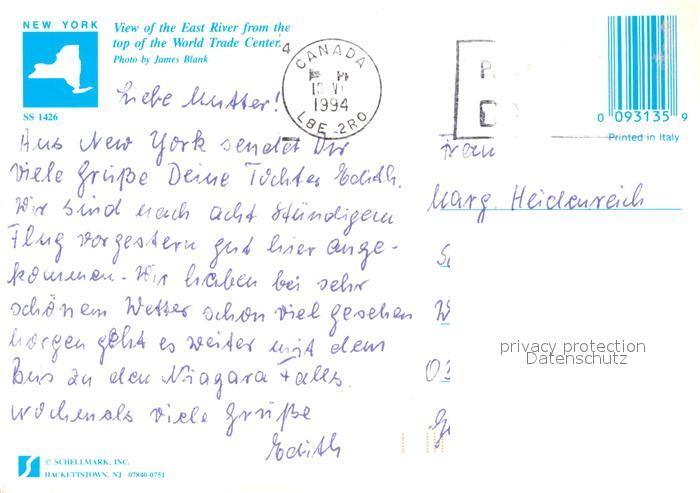 NEW YORK
View of the East River from the
top of the World Trade Center.
Photo by James Blank
SS 1426
4
CANADA
1994
L8E 2R0
0 093135 9
Printed in Italy
Liebe Mutter!
Aus New York sendet Dir
viele Grüße Deine Tochter Edith.
Wir sind nach acht stündigem
Flug vorgestern gut hier ange-
kommen. Wir haben bei sehr
schönem Wetter schon viel gesehen
morgen geht es weiter mit dem
Bus zu den Niagara Falls.
Nochmals viele Grüße
Edith
Frau
Marg. Heidenreich
privacy protection
Datenschutz
© SCHELLMARK, INC.
HACKETTSTOWN, NJ 07840-0751